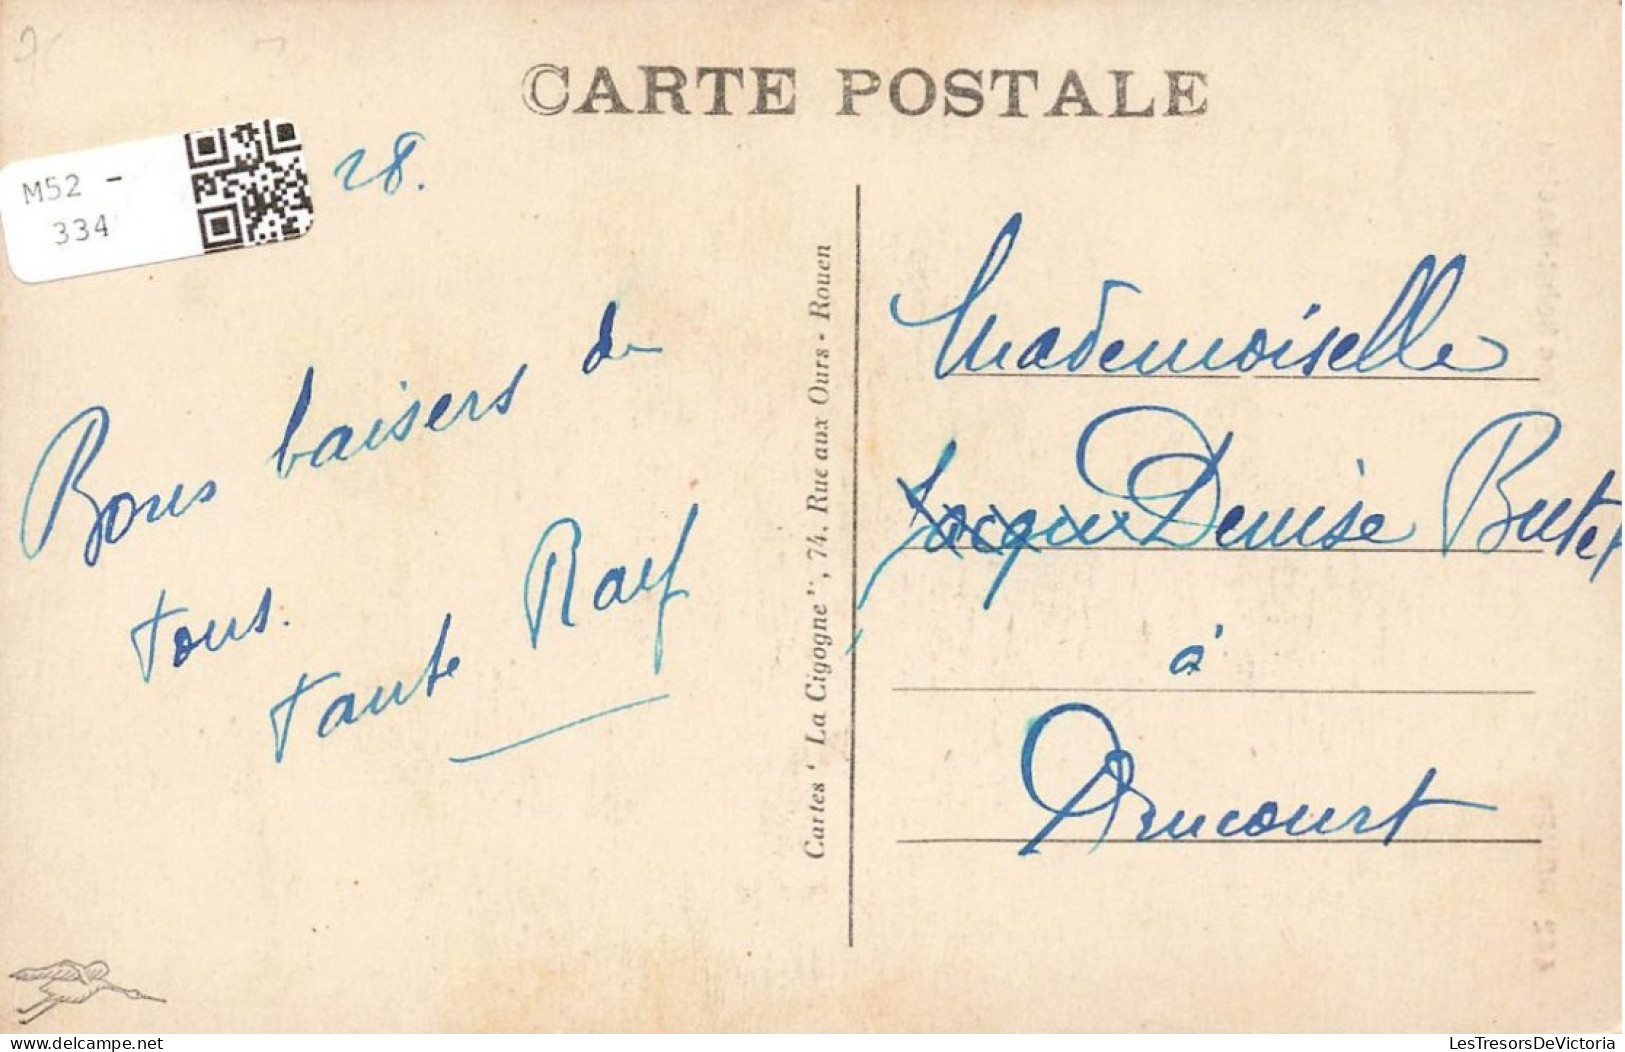 CARTE POSTALE
M52 -
334
28.
Bons baisers de
tous.
tante Raf
Cartes " La Cigogne ", 74, Rue aux Ours - Rouen
Mademoiselle
Denise Butel
à
Ancourt
LesTresorsDeVictoria
www.delcampe.net